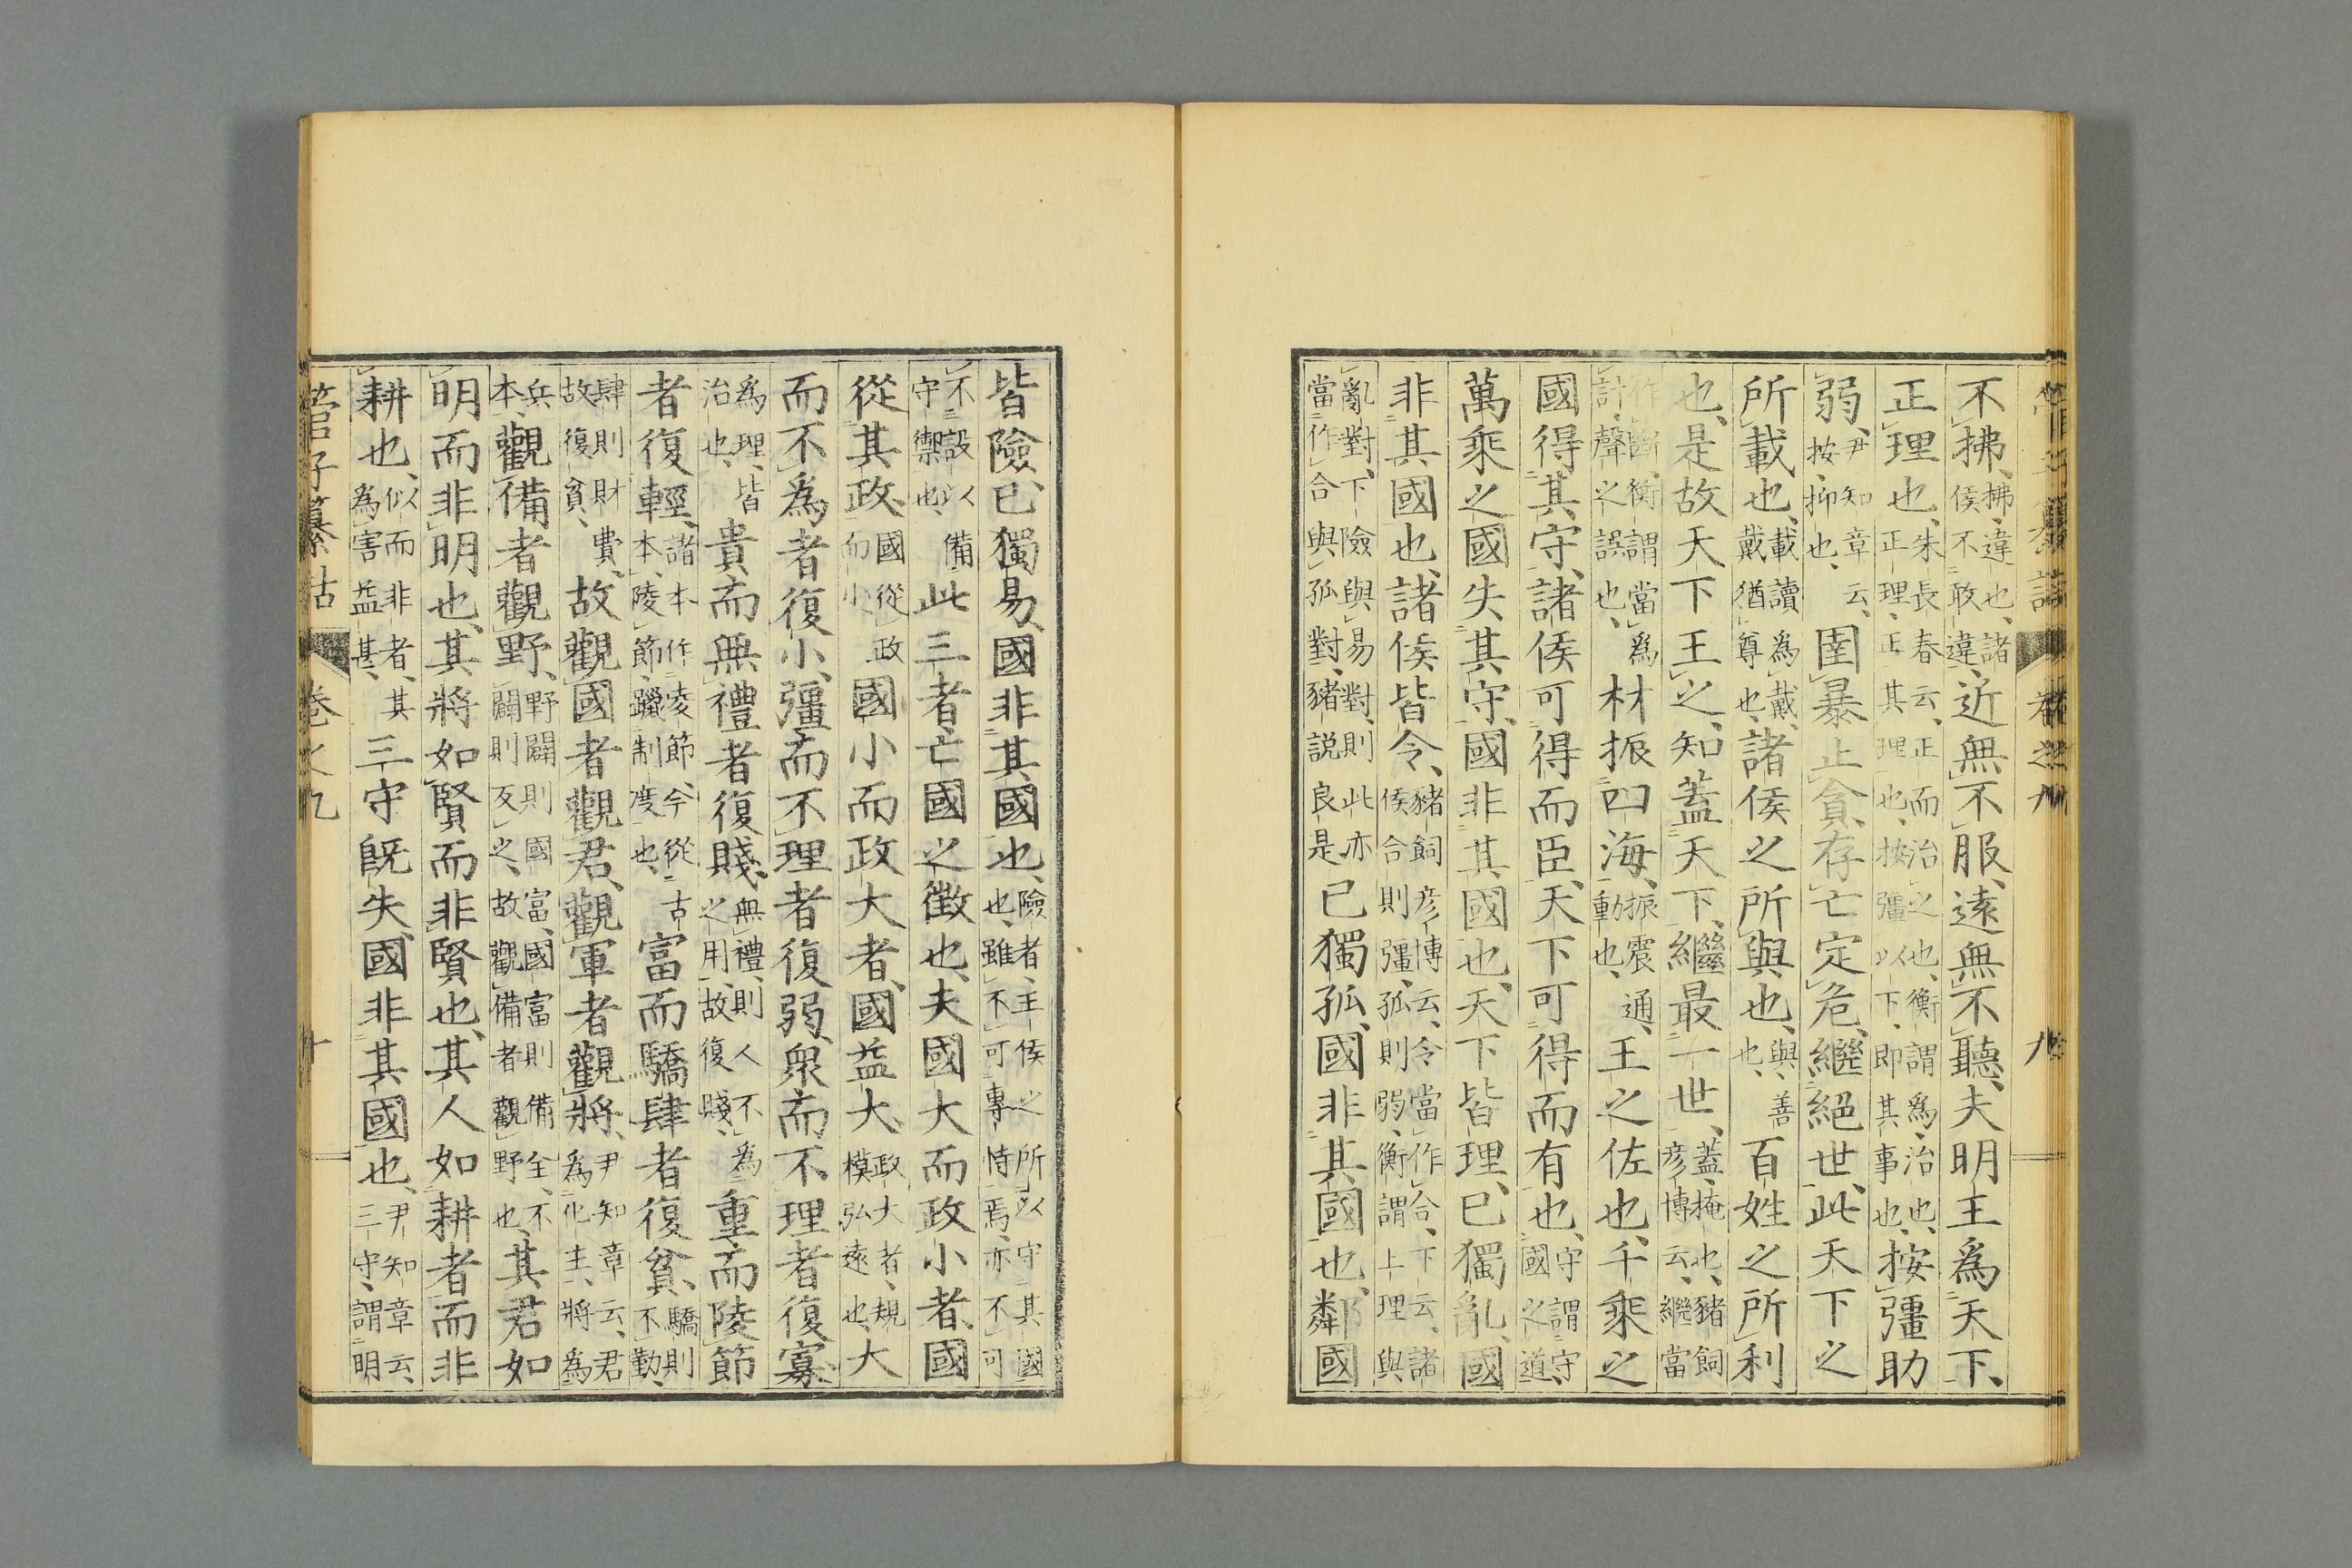 管子纂詁 卷之九 九
不拂、拂、違也、諸侯不敢違、近無不服、遠無不聽、夫明王為天下、
正理也、朱長春云、正而治之也、衡謂為、治也、正理、正其理也、按彊以下、即其事也、按彊助
弱、尹知章云、按、抑也、圉暴止貪、存亡定危、繼絕世、此天下之
所載也、載讀為戴、戴猶尊也、諸侯之所與也、與、善也、百姓之所利
也、是故天下王之、知蓋天下、繼最一世、蓋、掩也、豬飼彥博云、繼當
作斷、衡謂當為計、聲之誤也、材振四海、振、震通、動也、王之佐也、千乘之
國得其守、諸侯可得而臣、天下可得而有也、守謂守國之道、
萬乘之國失其守、國非其國也、天下皆理、已獨亂、國
非其國也、諸侯皆令、豬飼彥博云、令當作合、下云、諸侯合則彊、孤則弱、衡謂上理與
亂對、下險與易對、則此亦當作合與孤對、豬說良是已獨孤、國非其國也、鄰國
皆險、已獨易、國非其國也、險者、王侯之所以守其國也、雖不可專恃焉、亦不可
不設以備守禦也、此三者、亡國之徵也、夫國大而政小者、國
從其政、國從政而小、國小而政大者、國益大、政大者、規模弘遠也、大
而不為者復小、彊而不理者復弱、衆而不理者復寡、
為理、皆治也、貴而無禮者復賤、無禮、則人不為之用、故復賤、重而陵節
者復輕、諸本作凌節、今從古本、陵節、躐制度也、富而驕肆者復貧、驕則不勤、
肆則財費、故復貧、故觀國者觀君、觀軍者觀將、尹知章云、君為化主、將為
兵本、觀備者觀野、野闢則國富、國富則備全、不闢則反之、故觀備者觀野也、其君如
明而非明也、其將如賢而非賢也、其人如耕者而非
耕也、似而非者、其為害益甚、三守既失、國非其國也、尹知章云、三守、謂明
管子纂詁 卷之九 十